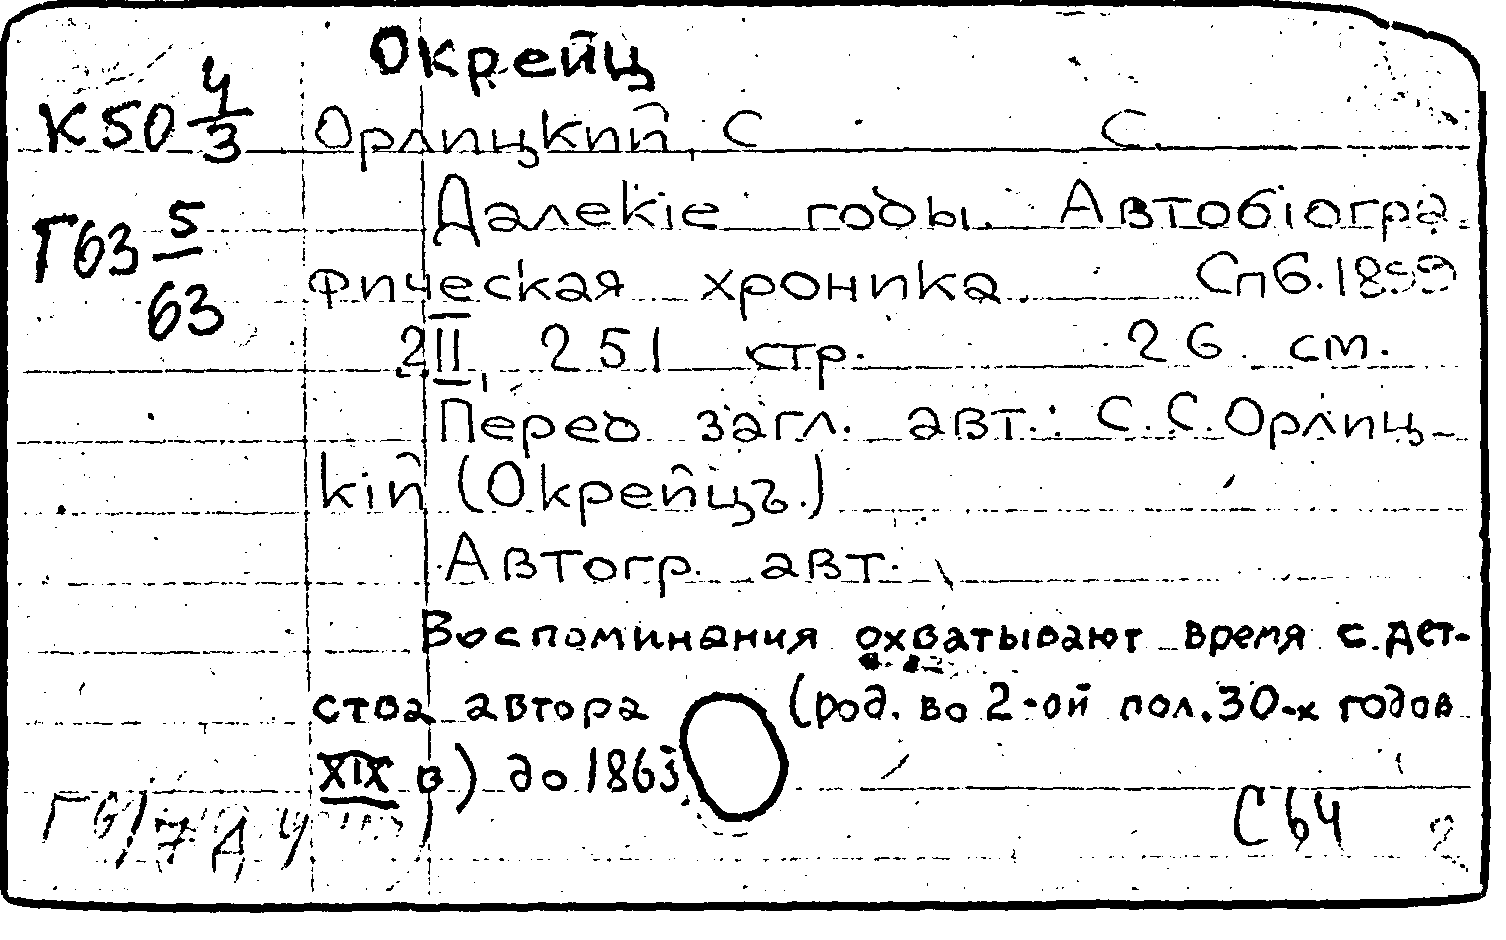 Окрейц
К50 4/3 Орлицкий, С С.
Далекіе годы. Автобіогра
Г63 5/63
фическая хроника. Спб. 1899
2, II, 251 стр. 26 см.
Перед загл. авт.: С. С. Орлиц-
кій (Окрейцъ.)
Автогр. авт.
Воспоминания охватывают время с дет-
ства автора (род. во 2-ой пол. 30-х годов
XIX в) до 1863
С64